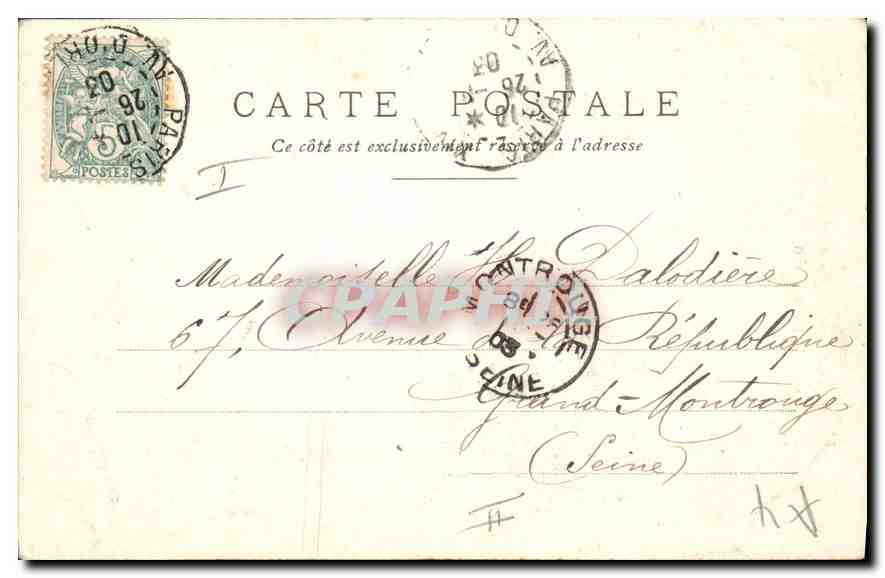 CARTE POSTALE
Ce côté est exclusivement réservé à l'adresse
5
POSTES
PARIS
10
26
03
AV. D'OR
I
Mademoiselle H. Dalodière
67, Avenue de la République
Grand-Montrouge
(Seine)
MONTROUGE
SEINE
03
CPAPHIL
II